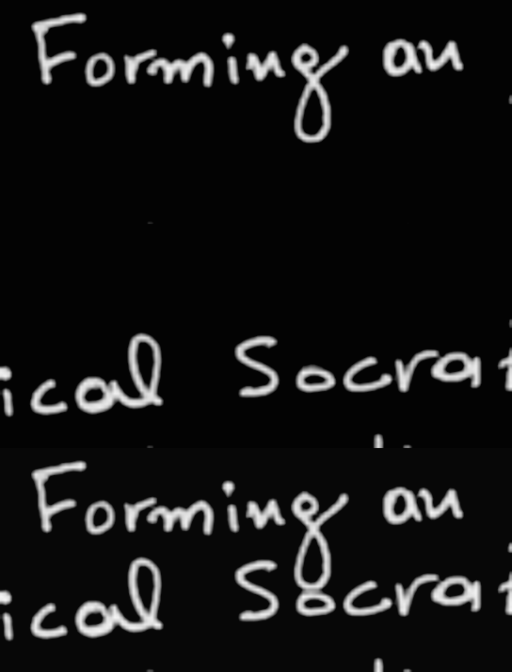 Forming an
ical Socrat
Forming an
ical Socrat